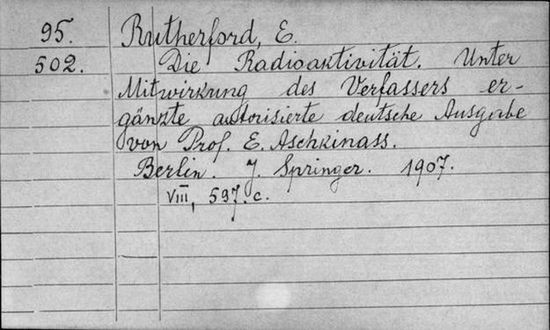 95.
502.
Rutherford, E.
Die Radioaktivität. Unter
Mitwirkung des Verfassers er-
gänzte autorisierte deutsche Ausgabe
von Prof. E. Aschkinass.
Berlin. J. Springer. 1907.
VIII, 597. c.